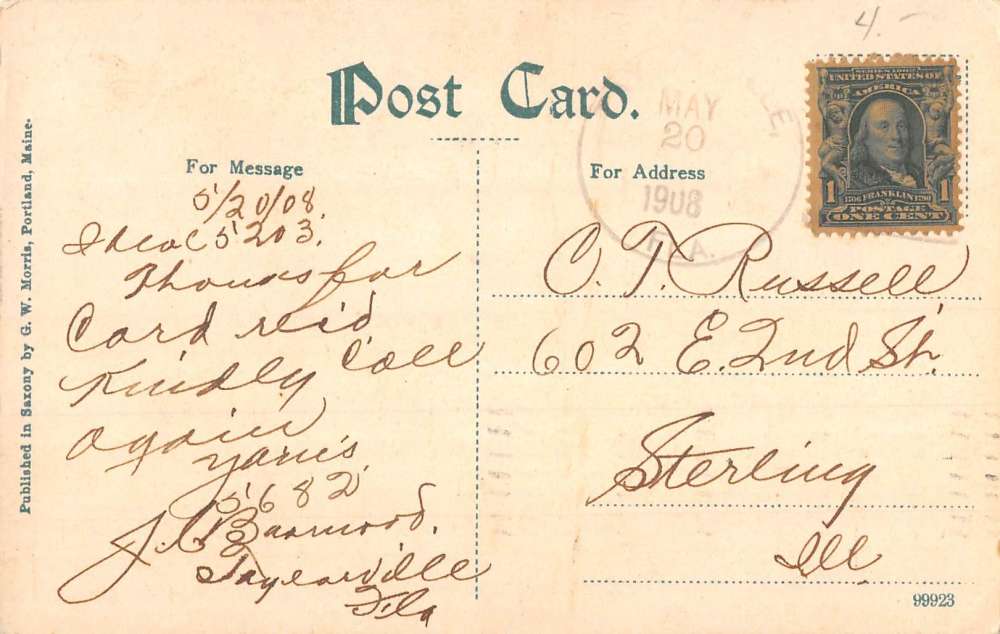 4. -
Post Card.
For Message
For Address
MAY
20
1908
FLA.
SERIES 1902
UNITED STATES OF
AMERICA
1706 FRANKLIN 1790
1 POSTAGE 1
ONE CENT
Published in Saxony by G. W. Morris, Portland, Maine.
5/20/08
Ideal 5203.
for
Card rec'd
Kindly Call
again
Yours
5682
J. C.
Fla
C. T. Russell
602 E. 2nd St.
Sterling
Ill
99923